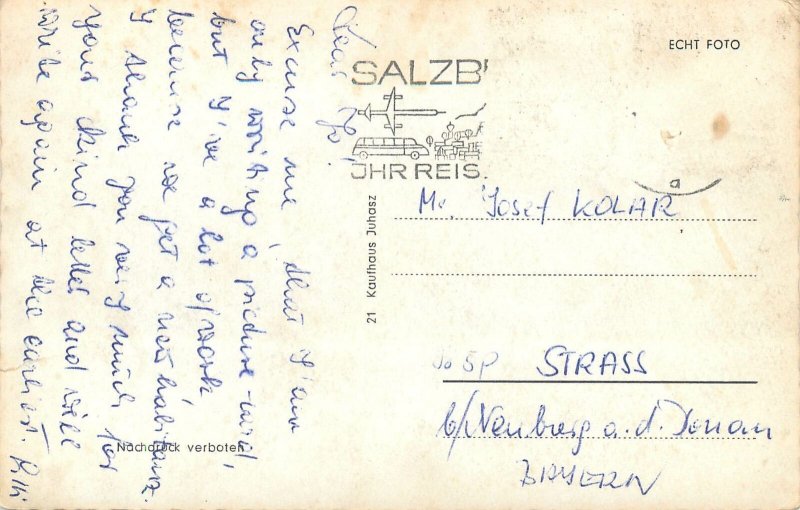 Dear Jo,
Excuse me, that I am
only writing a picture-card,
but I've a lot of work
because we get a new habitanz.
I thank you very much for
your kind letter and will
write again at the earliest.
ECHT FOTO
SALZB
IHR REIS.
21 Kaufhaus Juhasz
Mr. Josef KOLAR
STRASS
b/Neuburg a. d. Donau
BAYERN
Nachdruck verboten